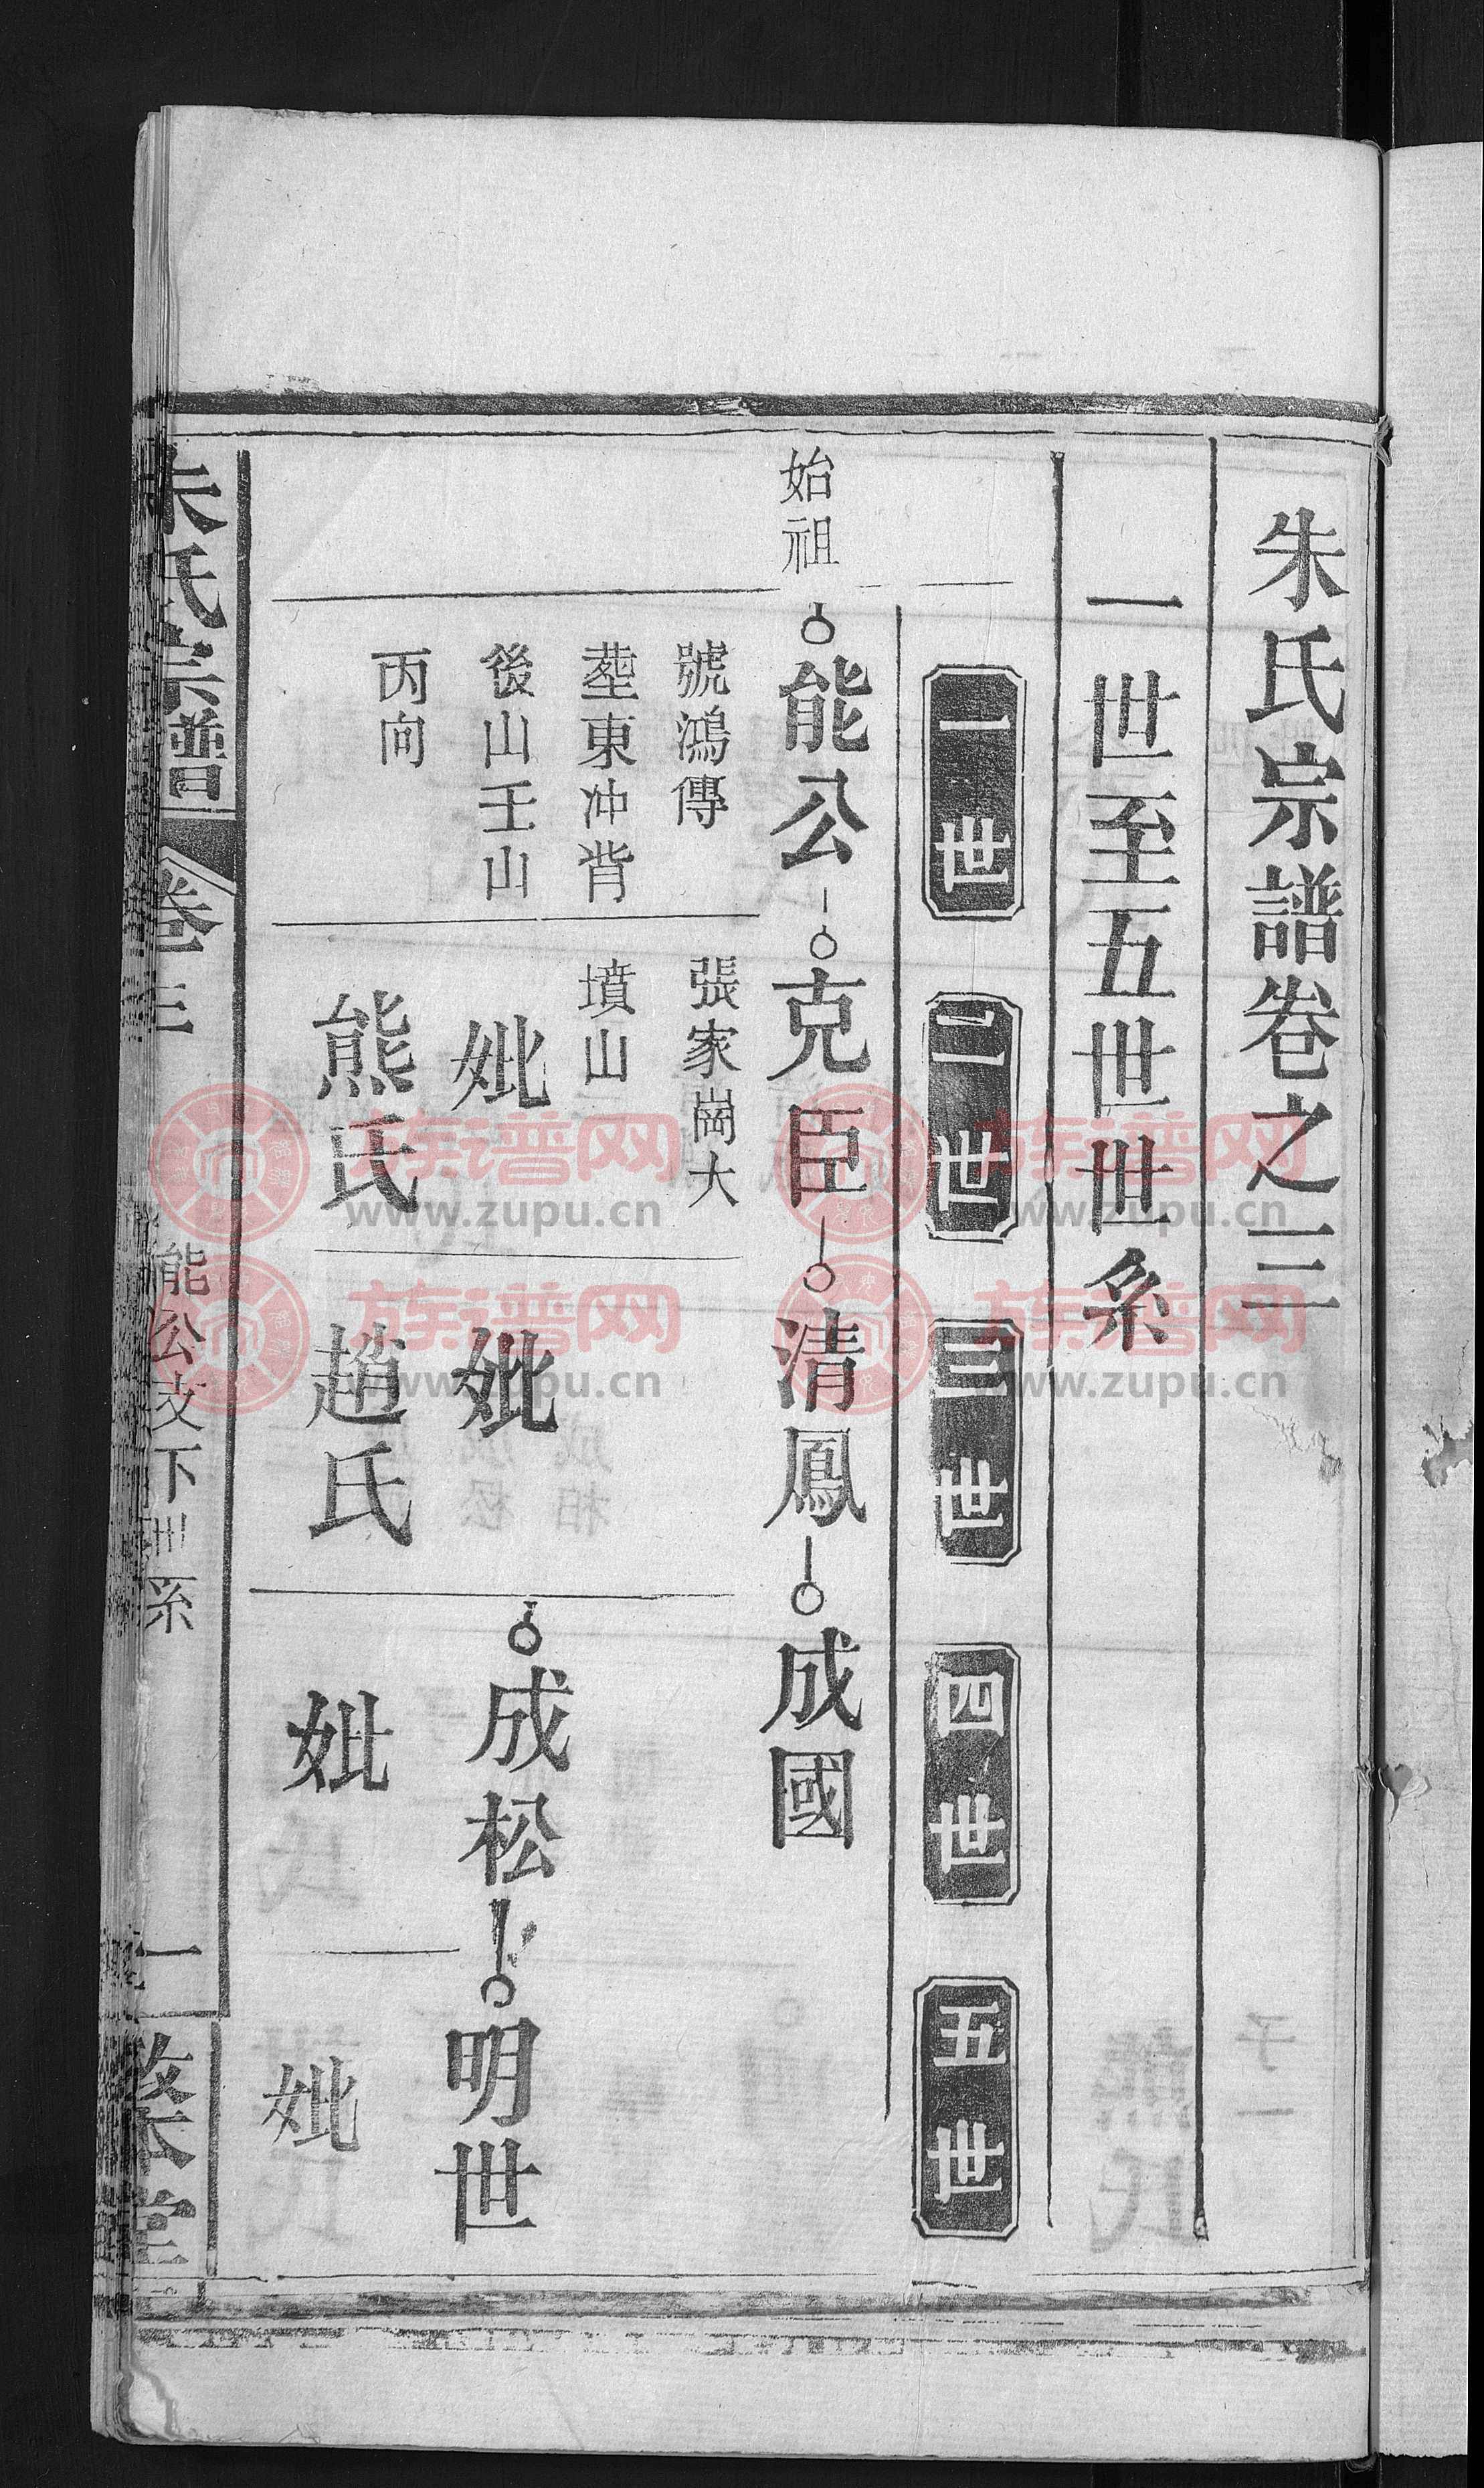 朱氏宗譜卷之三
一世至五世世系
一世
二世
三世
四世
五世
始祖
能公
克臣
清鳳
成國
號鴻傳
塟東冲背
後山壬山
丙向
張家崗大
墳山
妣
熊氏
妣
趙氏
成松
妣
明世
妣
朱氏宗譜
卷三
能公支下世系
一
堂
族谱网
www.zupu.cn
族谱网
www.zupu.cn
族谱网
www.zupu.cn
族谱网
www.zupu.cn